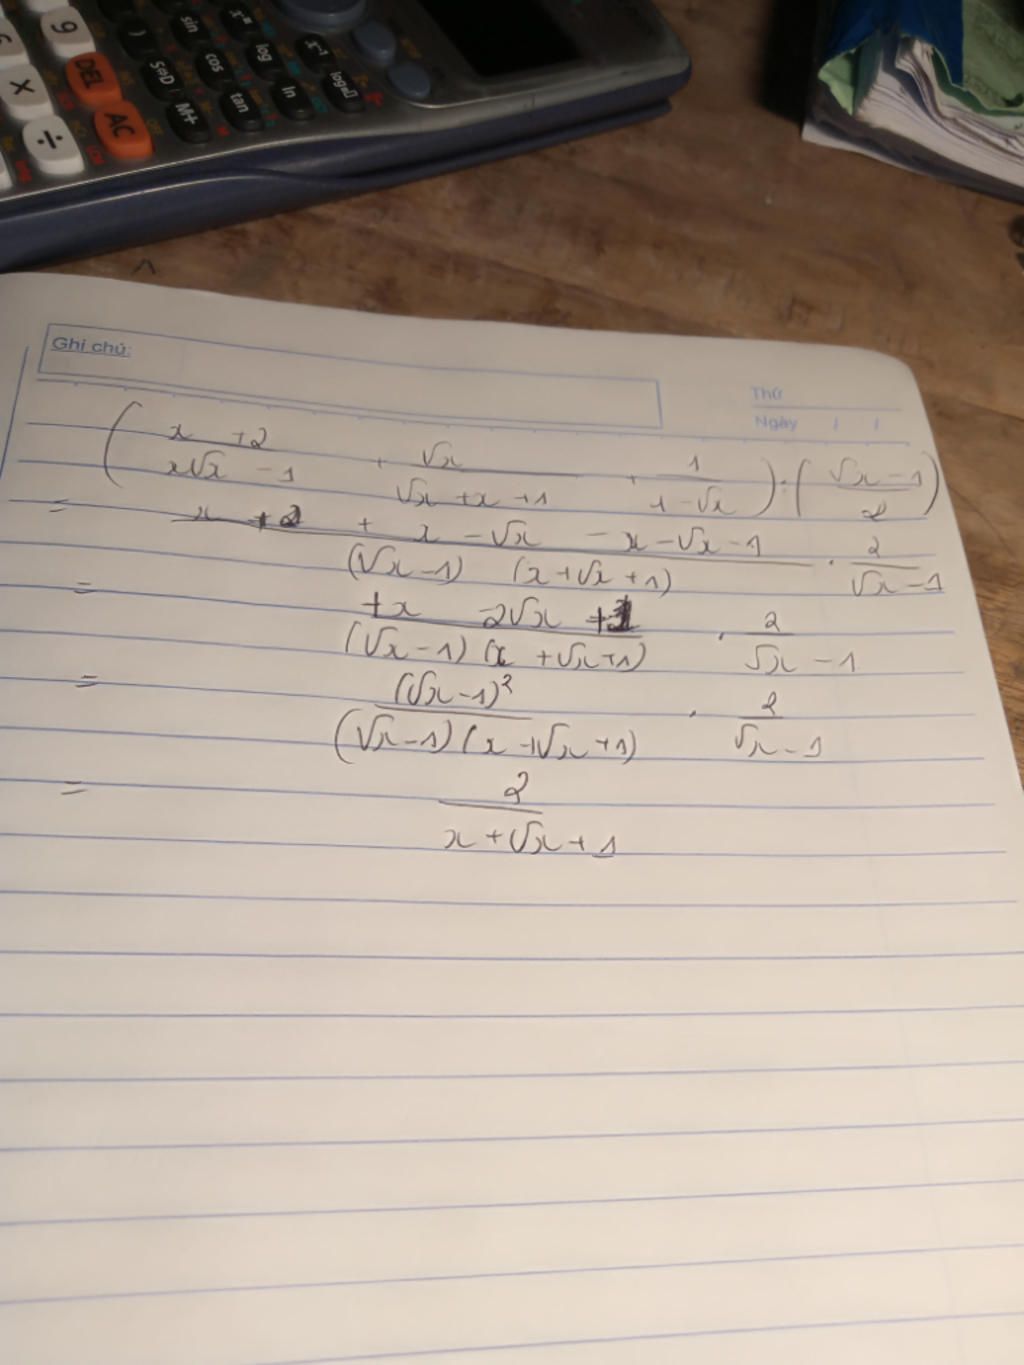 9
DEL
AC
×
÷
)
S⇔D
M+
sin
cos
tan
log
ln
Ghi chú:
Thứ
Ngày / /
( x + 2 / x√x - 1 + √x / √x + x + 1 + 1 / 1 - √x ) : ( √x - 1 / 2 )
= x + 2 + x - √x - x - √x - 1 / (√x - 1) (x + √x + 1) . 2 / √x - 1
= + x - 2√x + 1 / (√x - 1) (x + √x + 1) . 2 / √x - 1
= (√x - 1)² / (√x - 1) (x + √x + 1) . 2 / √x - 1
= 2 / x + √x + 1